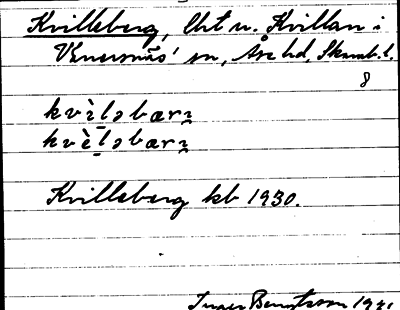 Kvilleberg, lht u. Kvillan i
Vänersnäs sn, Åse hd, Skarab. l.
8
kvìləbærɲ
kvèləbærɲ
Kvilleberg kb 1930.
Inger Bengtsson